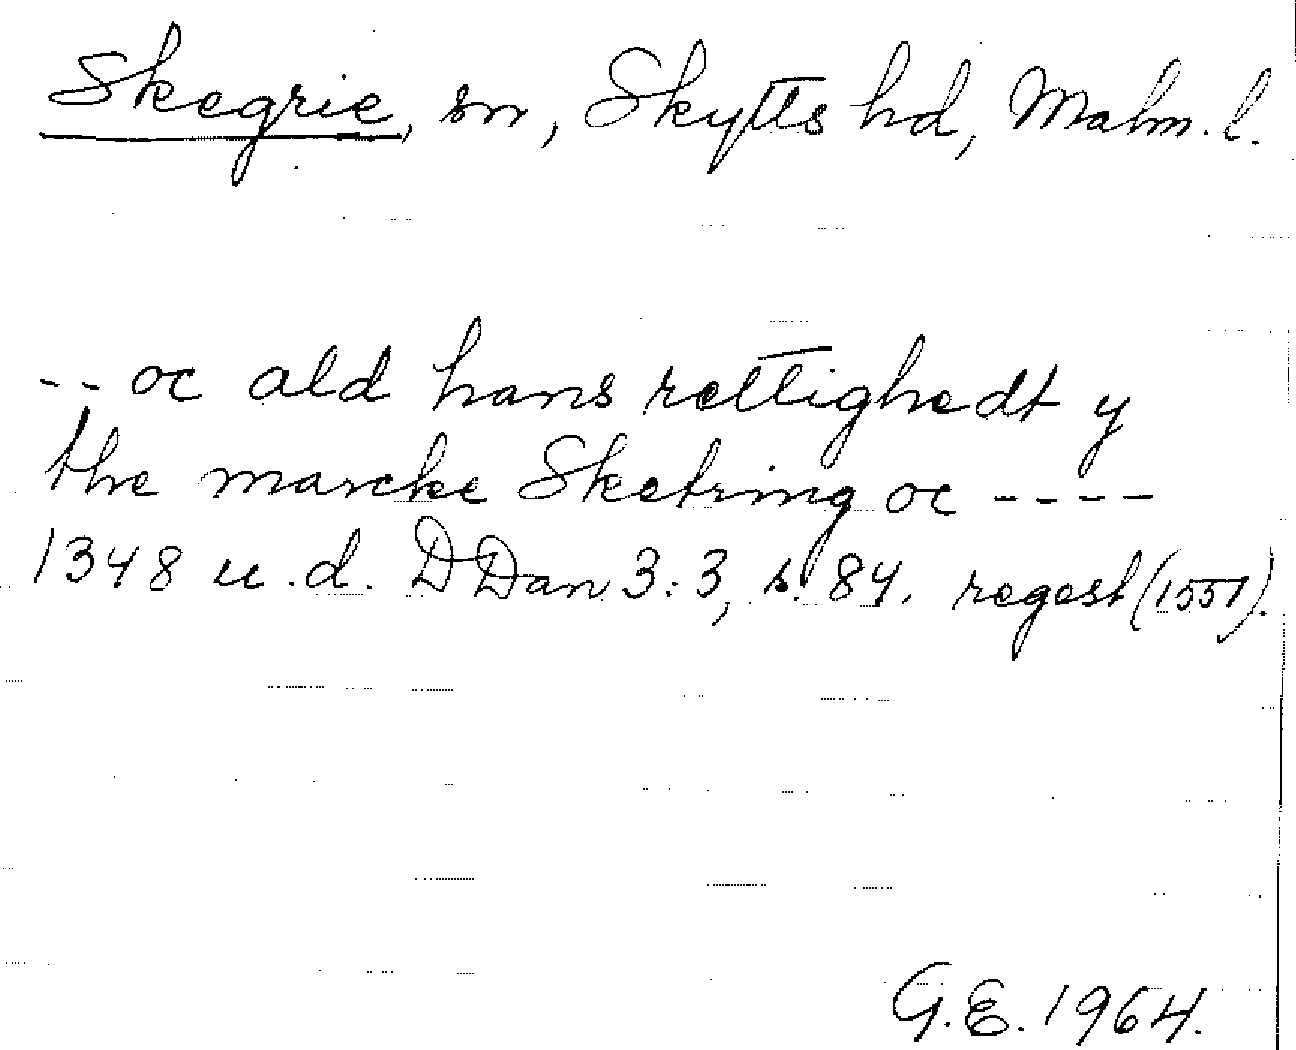 Skegrie, sn, Skytts hd, Malm. l.
-- oc ald hans rettighedt y
the marcke Sketring oc ----
1348 u.d. DDan 3:3, s. 84. regest (1551).
G.E. 1964.